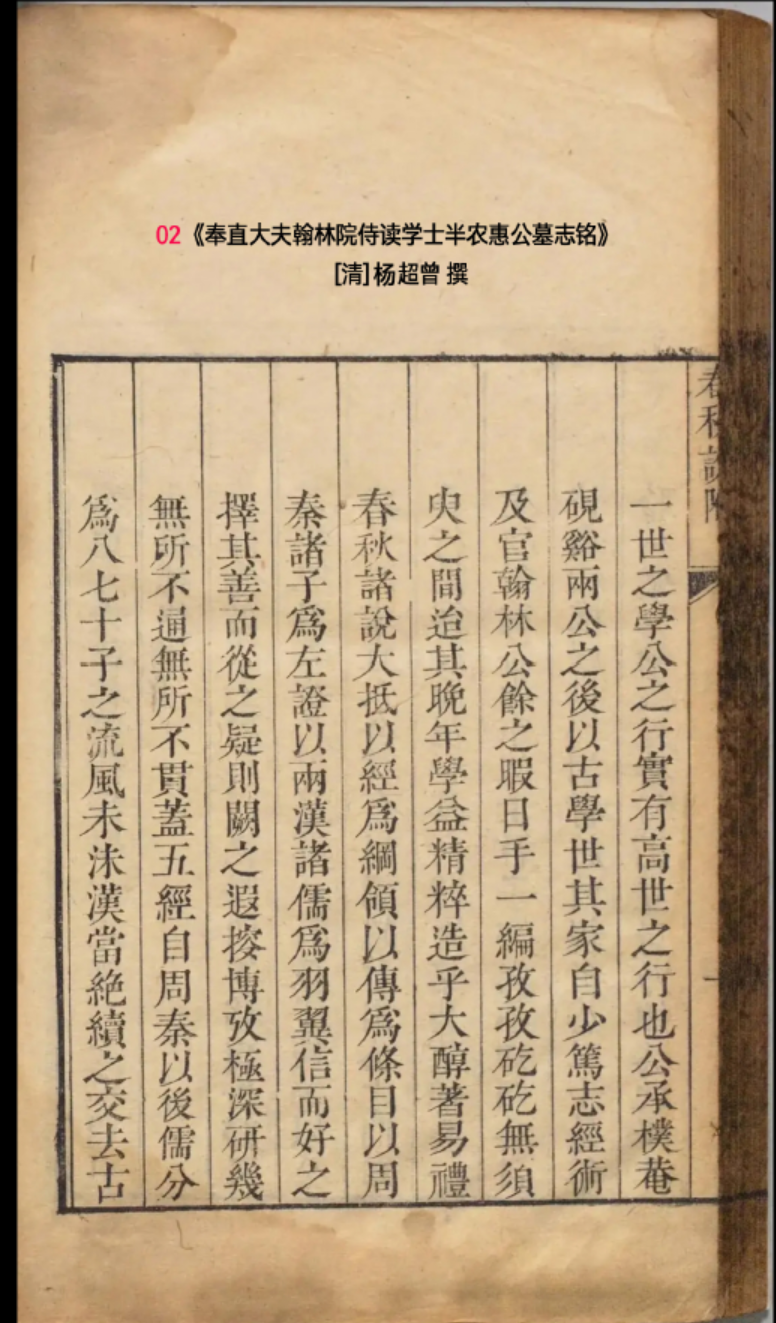 02《奉直大夫翰林院侍读学士半农惠公墓志铭》
[清]杨超曾 撰
一世之學公之行實有高世之行也公承樸菴
硯谿兩公之後以古學世其家自少篤志經術
及官翰林公餘之暇日手一編孜孜矻矻無須
臾之間迨其晚年學益精粹造乎大醇著易禮
春秋諸說大抵以經爲綱領以傳爲條目以周
秦諸子爲左證以兩漢諸儒爲羽翼信而好之
擇其善而從之疑則闕之遐搜博攷極深研幾
無所不通無所不貫蓋五經自周秦以後儒分
爲八七十子之流風未沬漢當絶續之交去古